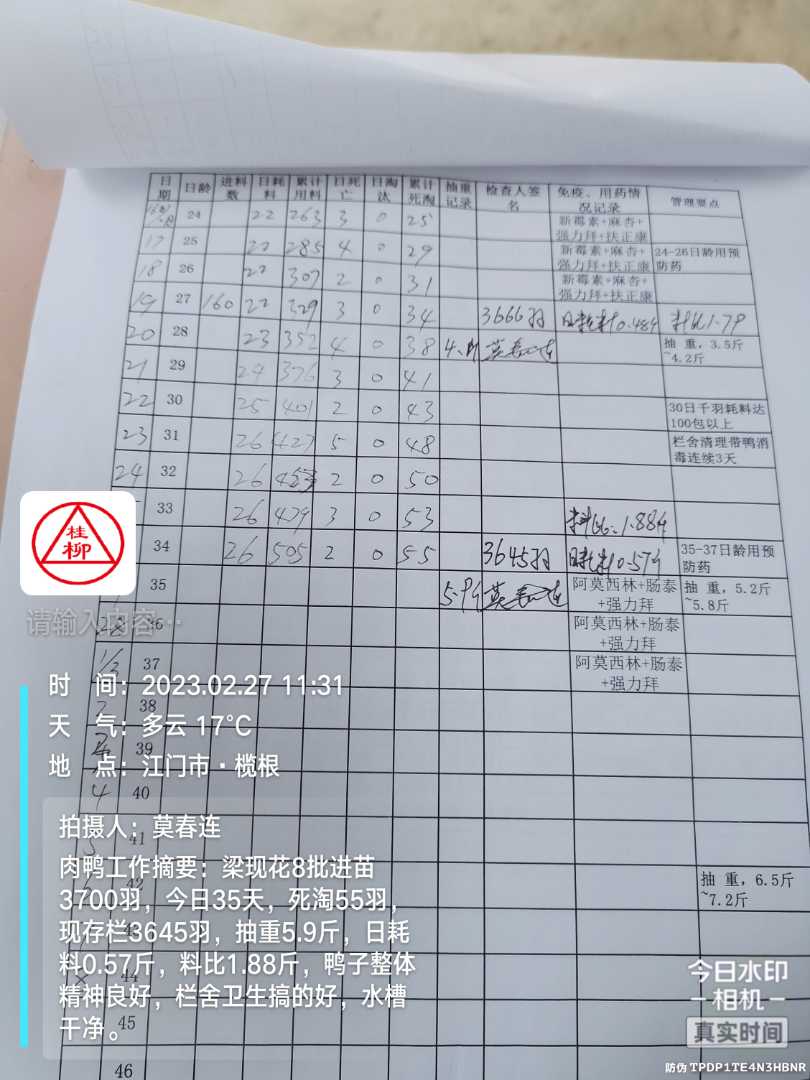 日期 日龄 进料数 日耗料 累计用料 日死亡 日淘汰 累计死淘 抽重记录 检查人签名 免疫、用药情况记录 管理要点
24 22 263 3 0 25 新霉素+麻杏+强力拜+扶正康
17 25 22 285 4 0 29 新霉素+麻杏+强力拜+扶正康 24-26日龄用预防药
18 26 22 307 2 0 31 新霉素+麻杏+强力拜+扶正康
19 27 160 22 329 3 0 34 3666羽 日耗料0.48斤 料比1.79
20 28 23 352 4 0 38 莫春连 抽重，3.5斤~4.2斤
21 29 24 376 3 0 41
22 30 25 401 2 0 43 30日千羽耗料达100包以上
23 31 26 427 5 0 48 栏舍清理带鸭消毒连续3天
24 32 26 453 2 0 50
33 26 479 3 0 53 料比1.88斤
34 26 505 2 0 55 3645羽 日耗料0.57斤 35-37日龄用预防药
35 5.9斤 莫春连 阿莫西林+肠泰+强力拜 抽重，5.2斤~5.8斤
28 36 阿莫西林+肠泰+强力拜
37 阿莫西林+肠泰+强力拜
38
39
4 40
41
42 抽重，6.5斤~7.2斤
43
44
45
46
桂柳
请输入内容…
时 间：2023.02.27 11:31
天 气：多云 17℃
地 点：江门市·榄根
拍摄人：莫春连
肉鸭工作摘要：梁现花8批进苗
3700羽，今日35天，死淘55羽，
现存栏3645羽，抽重5.9斤，日耗
料0.57斤，料比1.88斤，鸭子整体
精神良好，栏舍卫生搞的好，水槽
干净。
今日水印
相机
真实时间
防伪 TPDP1TE4N3HBNR